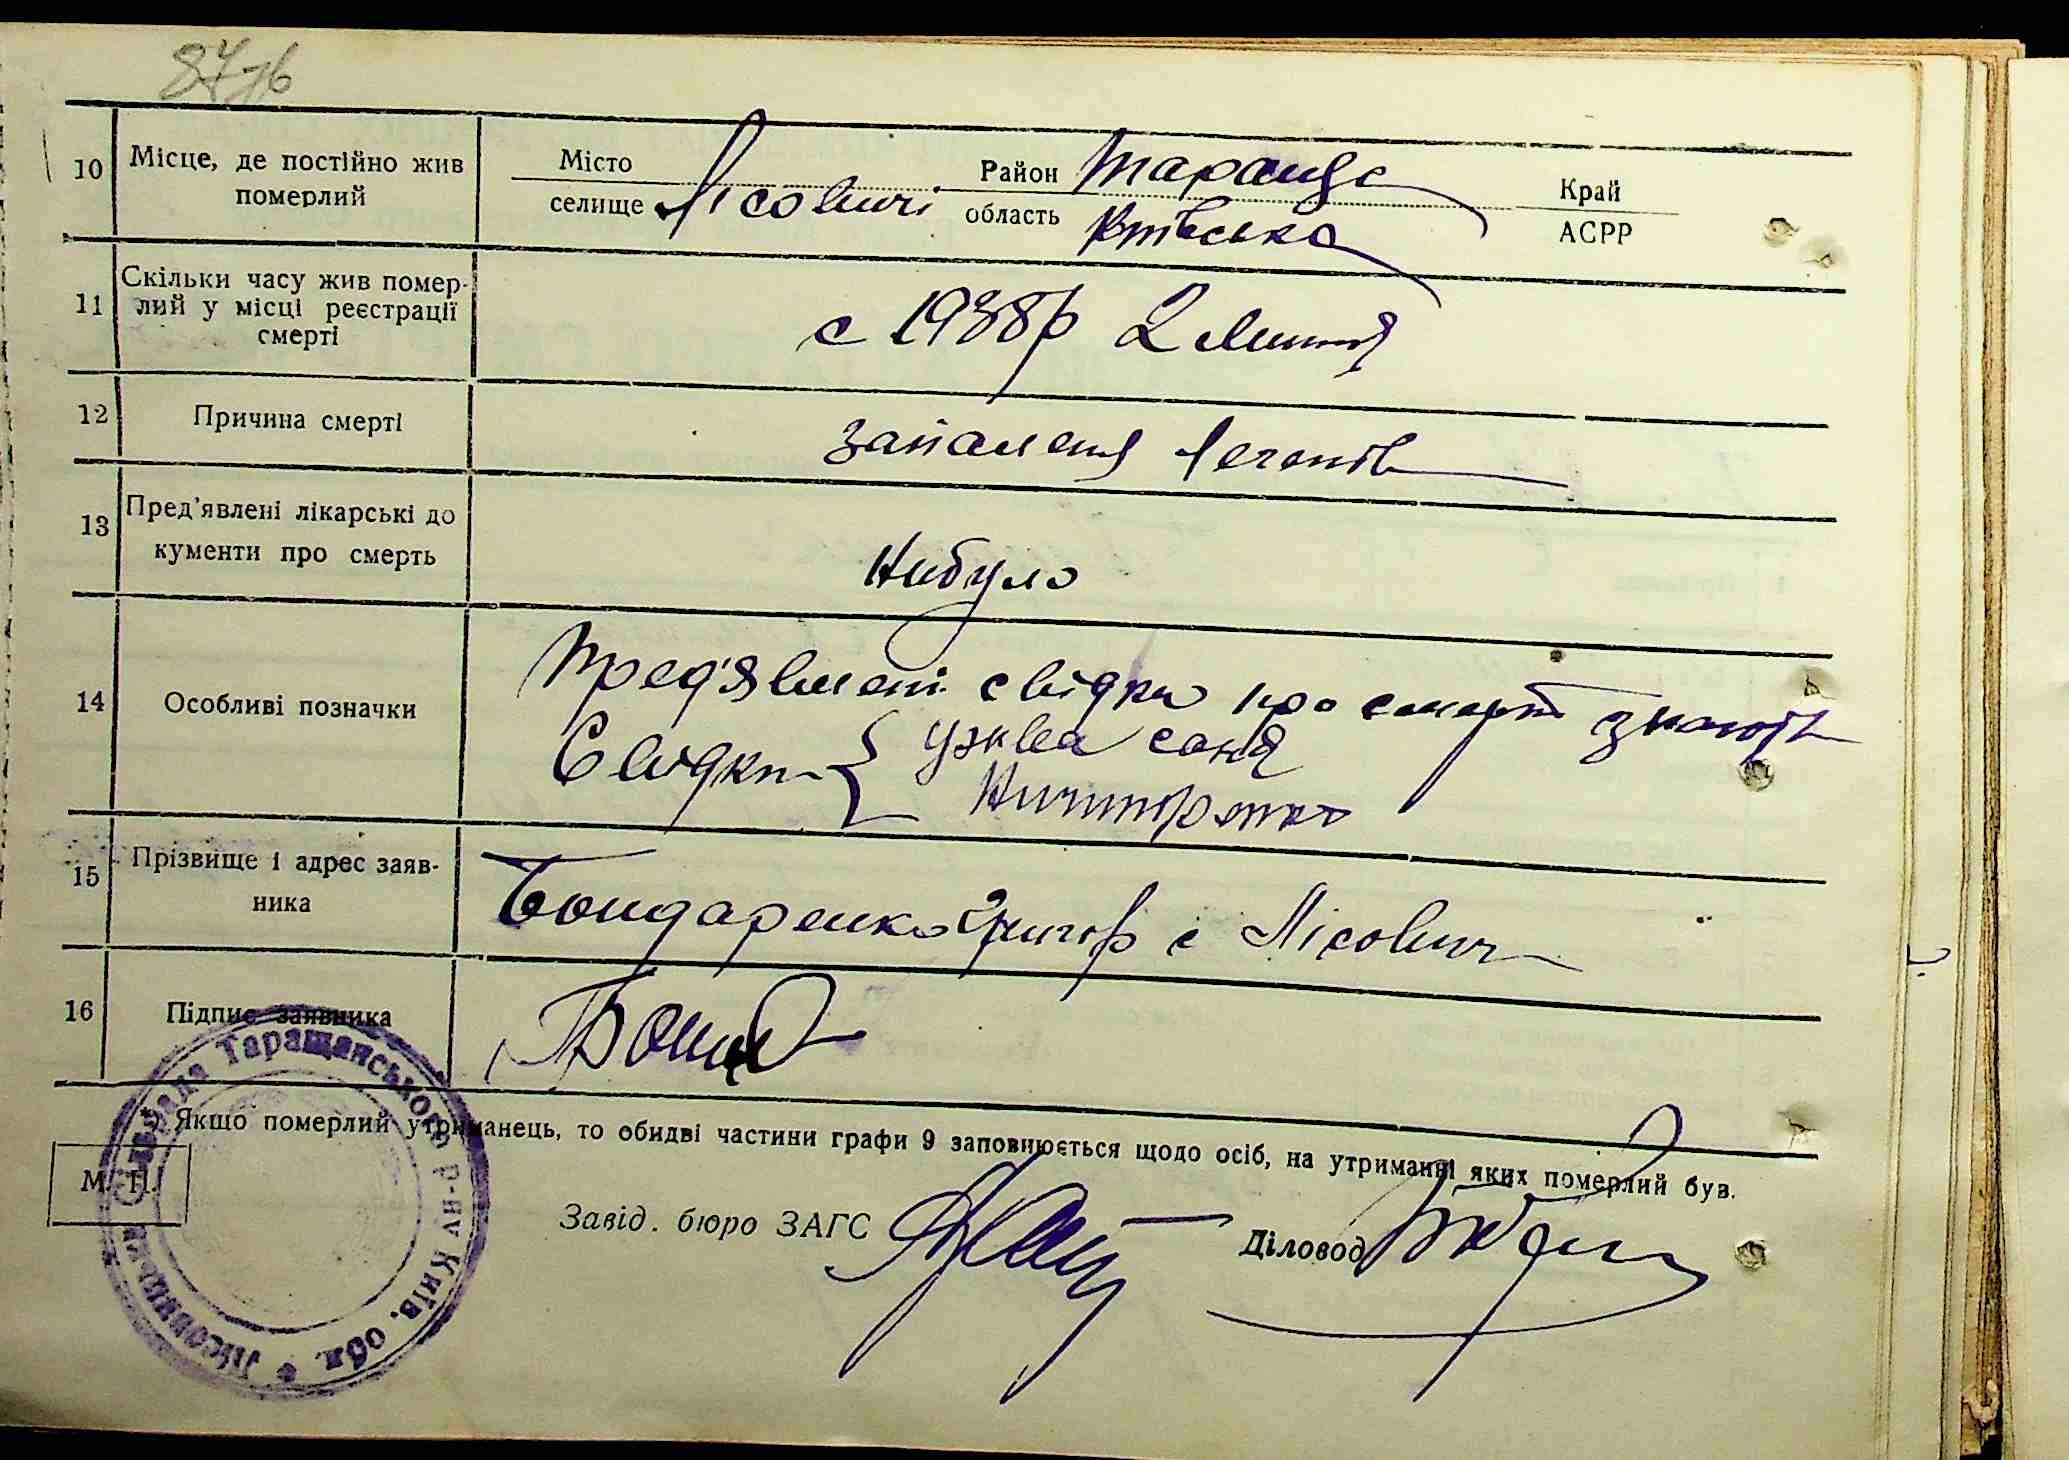 87зв
10 Місце, де постійно жив
померлий
Місто
селище Лісовичі
Район Тараща
область Київська
Край
АСРР
11 Скільки часу жив помер-
лий у місці реєстрації
смерті
с 1938р 2 липня
12 Причина смерті
запаленя легенів
13 Пред'явлені лікарські до
кументи про смерть
Небуло
14 Особливі позначки
Пред'явлені свідки про смерть знають
Свідки Ужва Саня
Ничипоренко
15 Прізвище і адрес заяв-
ника
Бондаренко Григор с Лісовичі
16 Підпис заявника
ГБонд
Якщо померлий утриманець, то обидві частини графи 9 заповнюється щодо осіб, на утриманні яких померлий був.
М. П.
Завід. бюро ЗАГС
Діловод
Лісовицька Сільрада Таращанського р-ну Київ. обл.